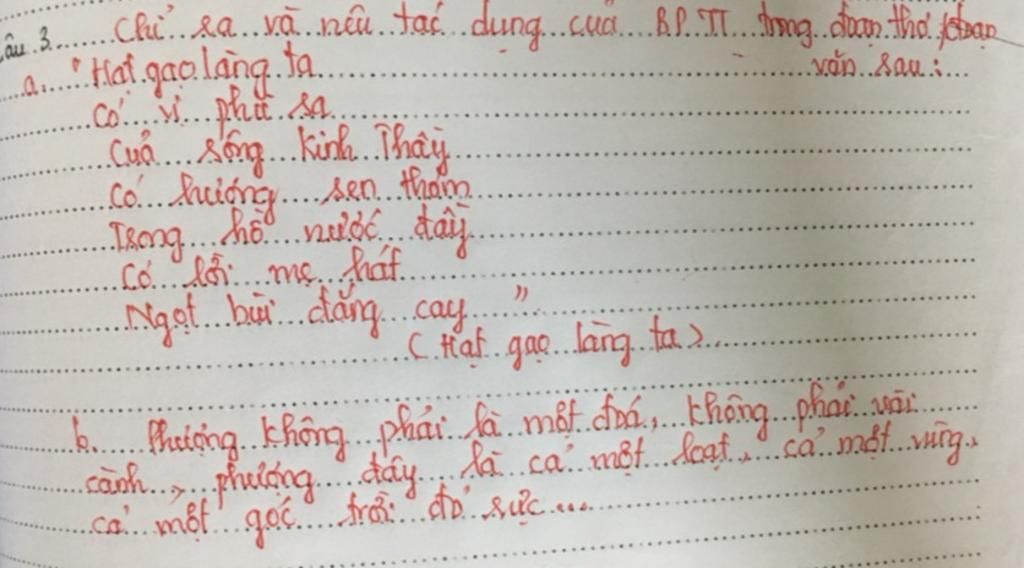 Câu 3. Chỉ ra và nêu tác dụng của BPTT trong đoạn thơ /đoạn
văn sau:
a. "Hạt gạo làng ta
Có vị phù sa
Của sông Kinh Thầy
Có hương sen thơm
Trong hồ nước đầy
Có lời mẹ hát
Ngọt bùi đắng cay"
(Hạt gạo làng ta)
b. Phượng không phải là một đoá, không phải vài
cành, phượng đây là cả một loạt, cả một vùng,
cả một góc trời đỏ rực...